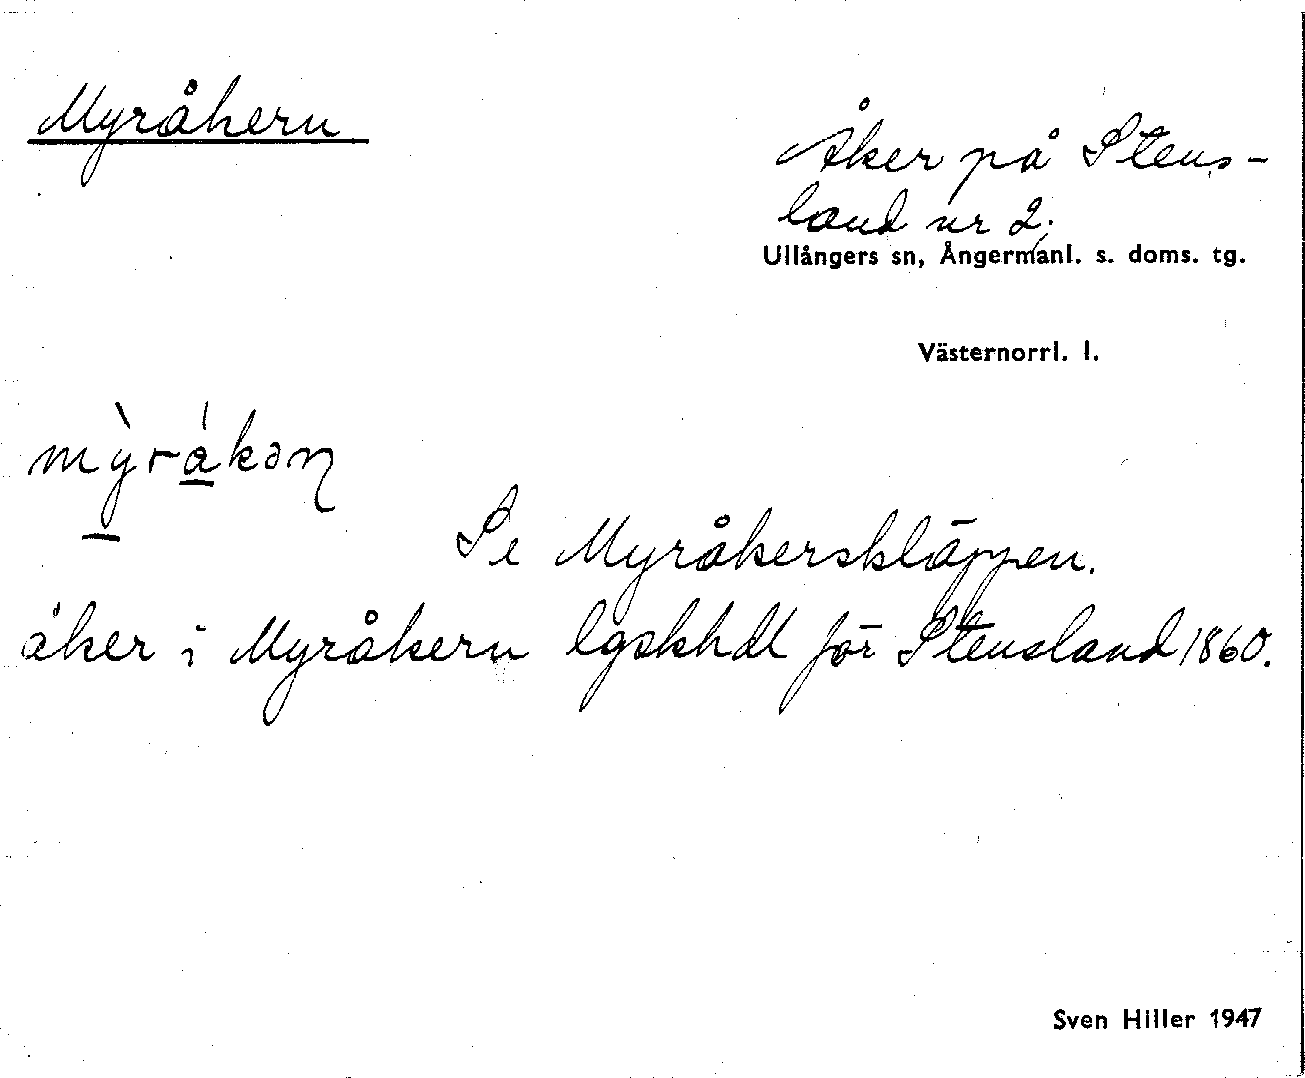 Myråkern
Åker på Stens-
land nr 2.
Ullångers sn, Ångermanl. s. doms. tg.
Västernorrl. l.
mỳråkəɳ
Se Myråkerskläppen.
åker i Myråkern lgskhdl för Stensland 1860.
Sven Hiller 1947